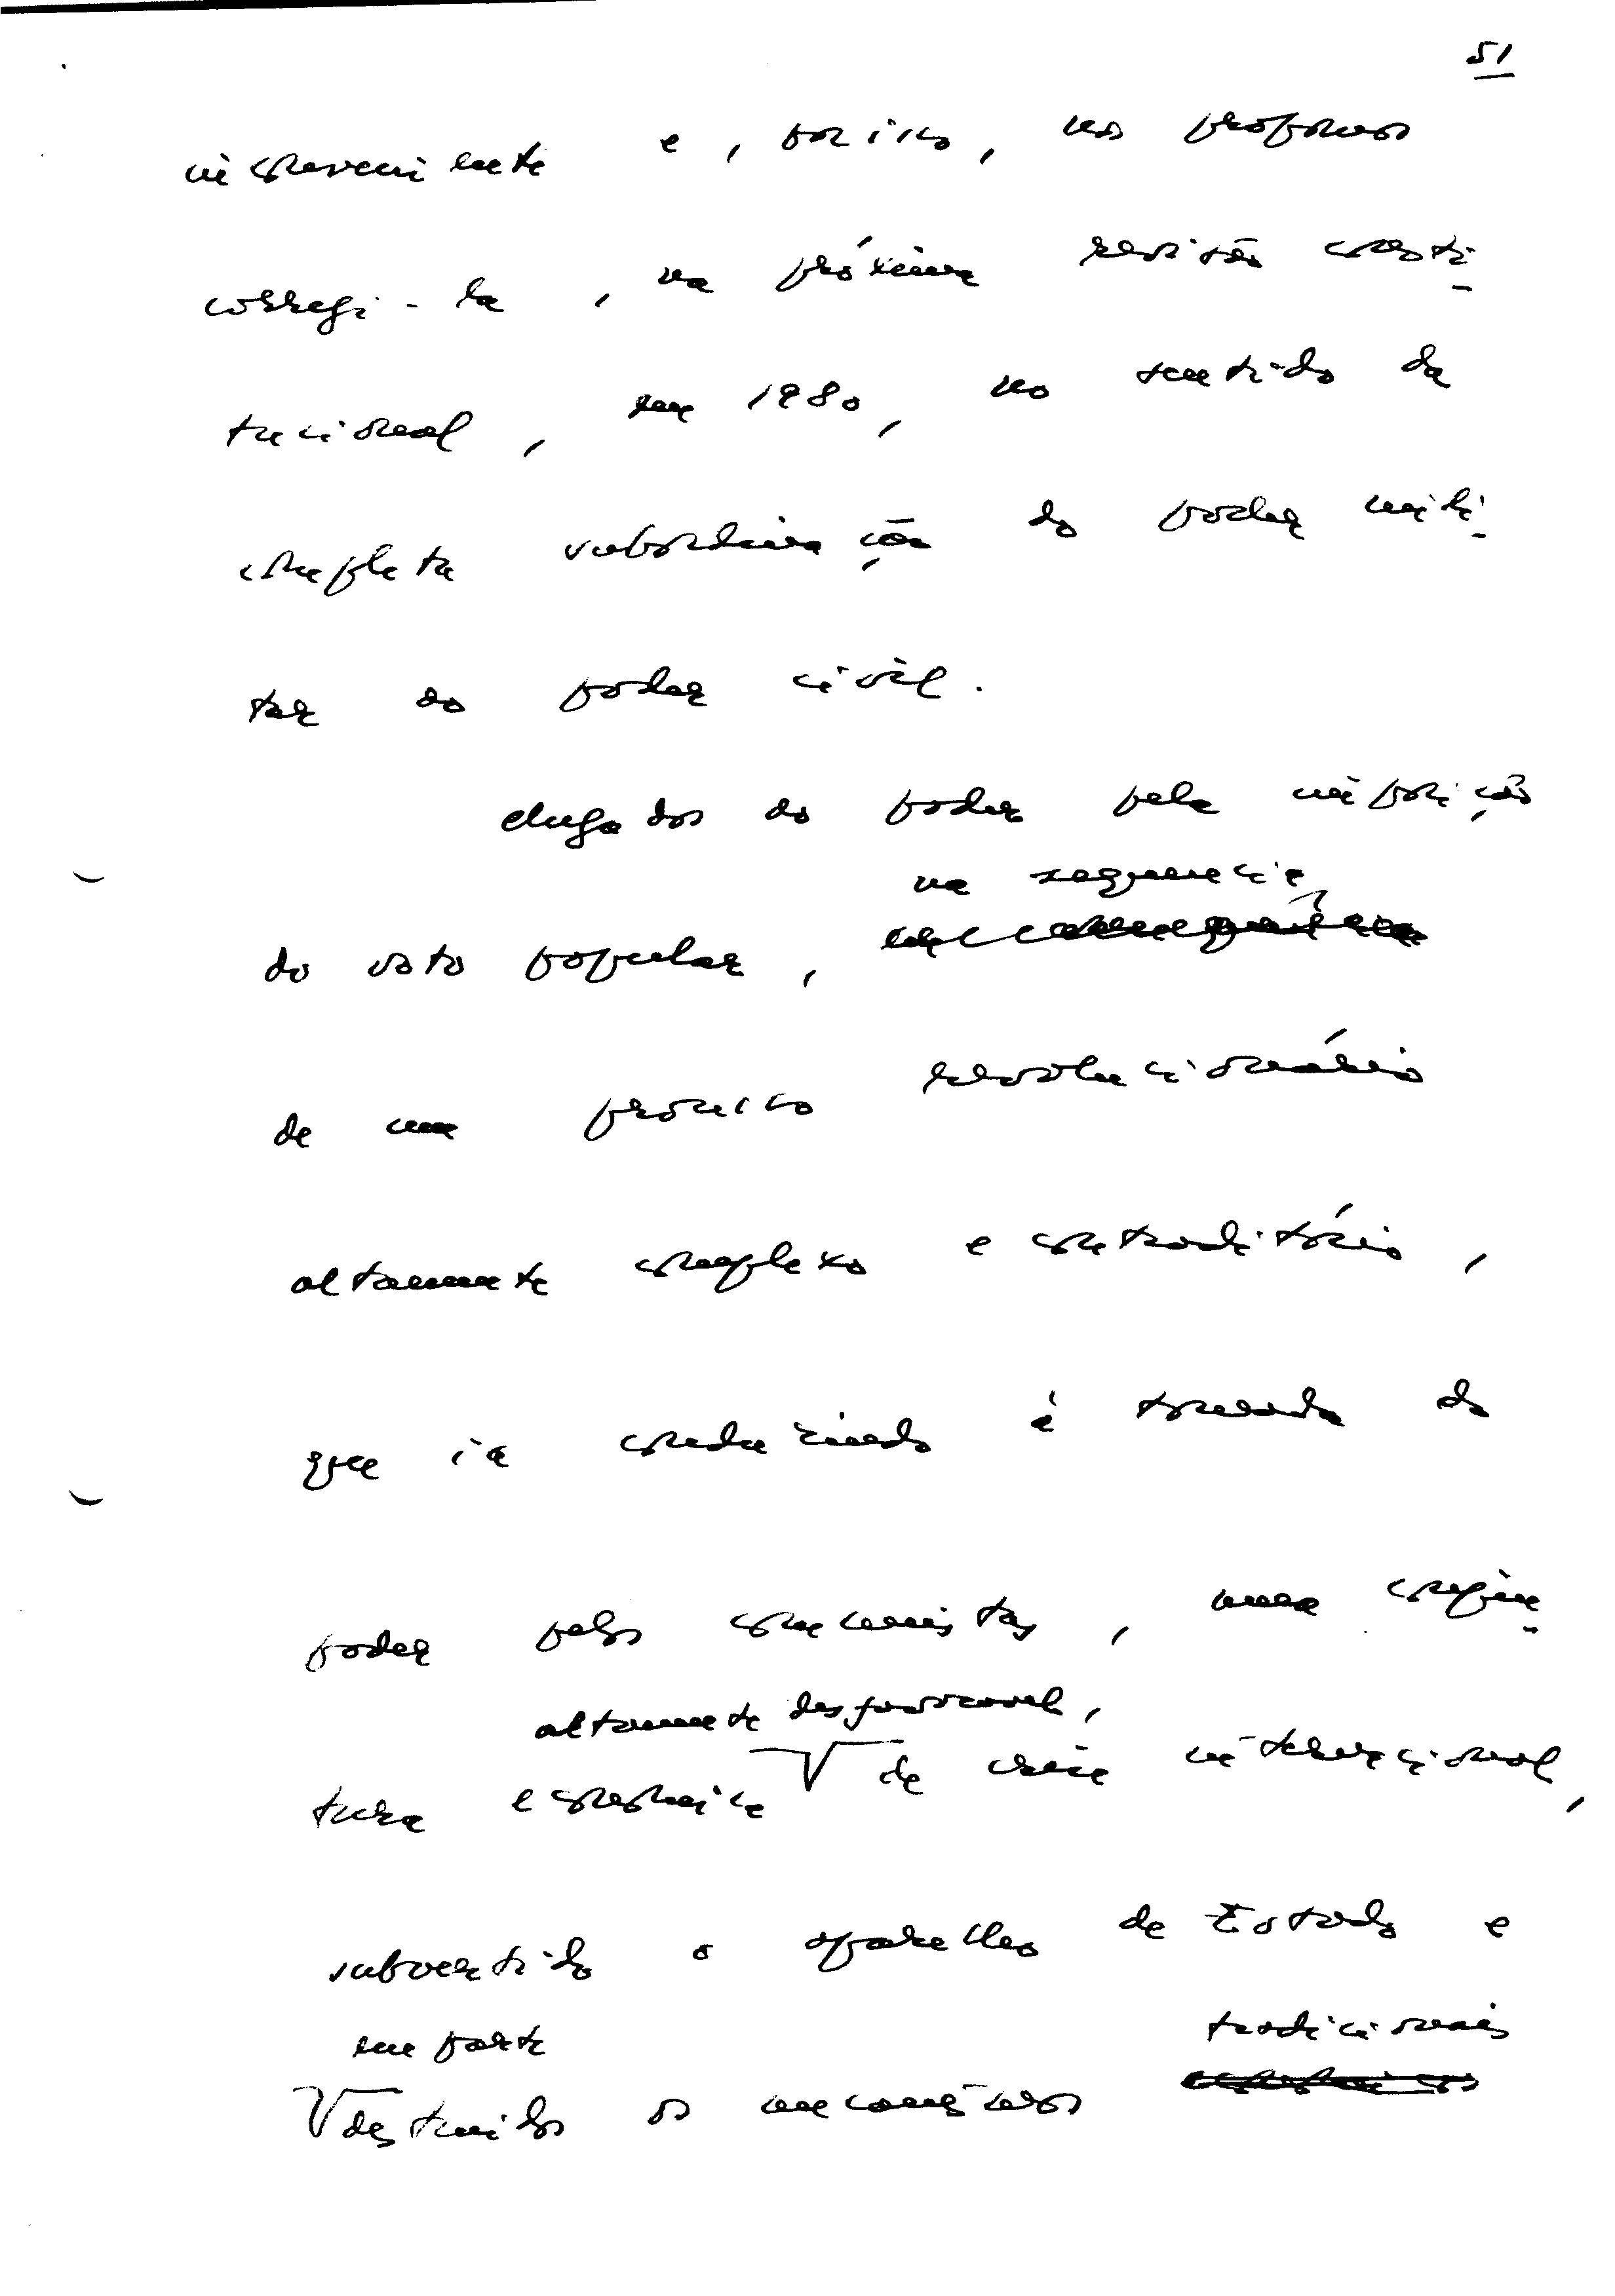 51
inconveniente e, por isso, nos propomos
corrigi-la, na próxima revisão consti-
tucional, em 1980, no sentido da
completa subordinação do poder mili-
tar ao poder civil.
chegados ao poder pela imposição
na sequência
do voto popular,
de um processo revolucionário
altamente complexo e contraditório,
que ia conduzindo à tomada do
poder pelos comunistas, numa conjun-
altamente desfavorável,
tura económica de crise internacional,
subvertido o aparelho de Estado e
em parte tradicionais
destruidos os mecanismos